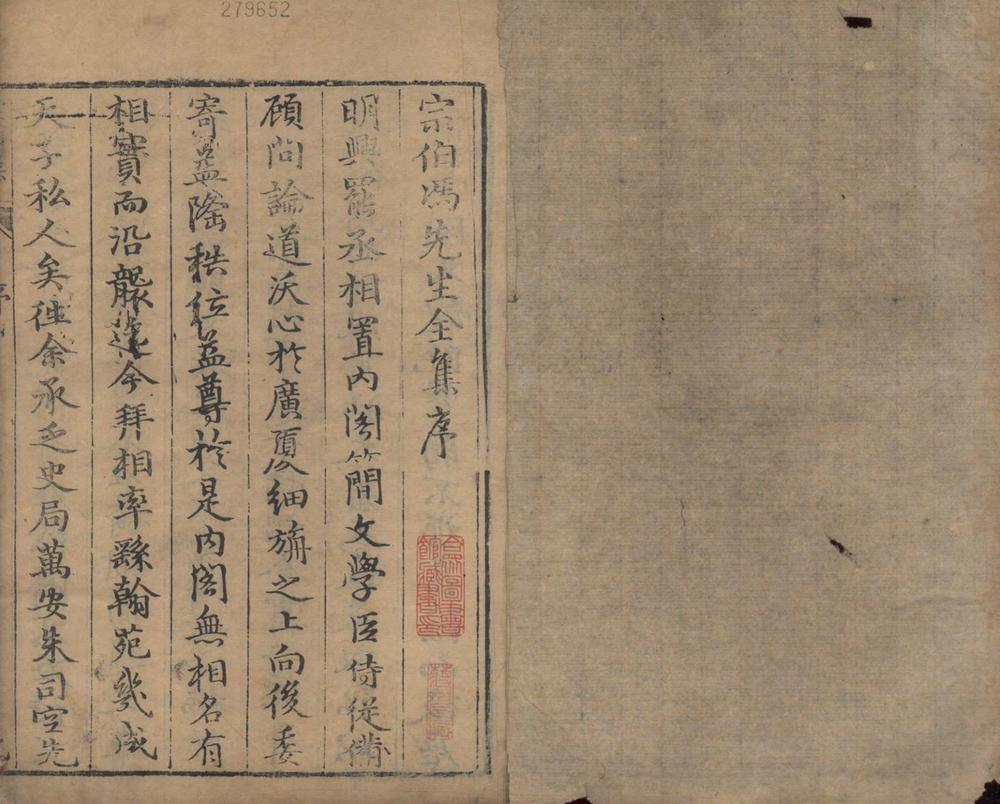 279652
宗伯馮先生全集序
明興罷丞相置內閣簡文學臣侍從備
顧問論道沃心於廣厦細旃之上向後委
寄益隆秩位益尊於是內閣無相名有
相實而沿襲迄今拜相率繇翰苑幾成
天子私人矣往余承乏史局萬安朱司空先
序
圖書
館藏書